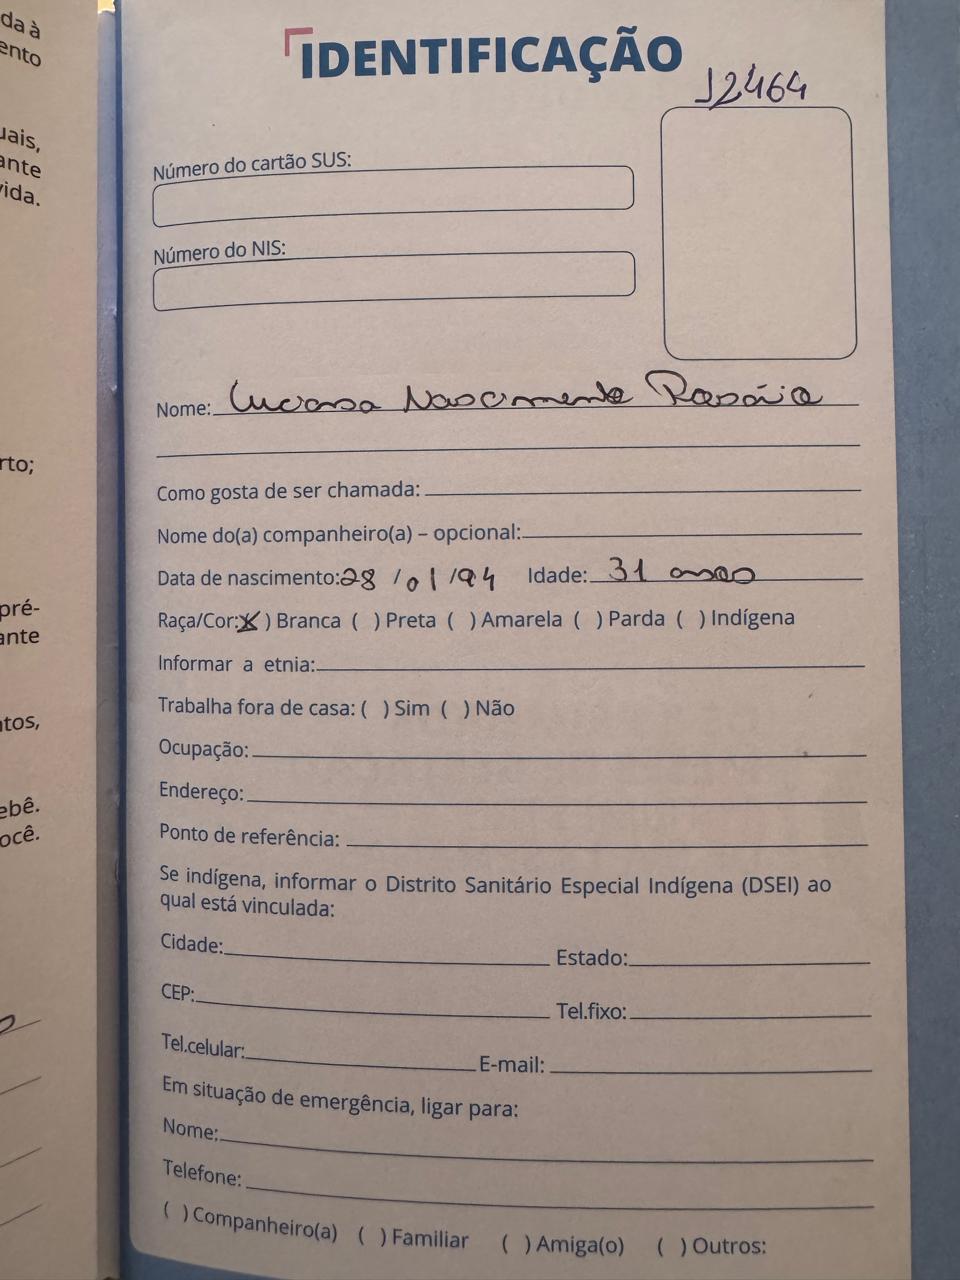 da à
ento
uais,
ante
vida.
rto;
pré-
ante
ntos,
ebê.
ocê.
IDENTIFICAÇÃO
J2464
Número do cartão SUS:
Número do NIS:
Nome: Luciana Nascimento Rosário
Como gosta de ser chamada:
Nome do(a) companheiro(a) – opcional:
Data de nascimento: 28 / 01 / 94 Idade: 31 anos
Raça/Cor: (X) Branca ( ) Preta ( ) Amarela ( ) Parda ( ) Indígena
Informar a etnia:
Trabalha fora de casa: ( ) Sim ( ) Não
Ocupação:
Endereço:
Ponto de referência:
Se indígena, informar o Distrito Sanitário Especial Indígena (DSEI) ao
qual está vinculada:
Cidade: Estado:
CEP: Tel.fixo:
Tel.celular: E-mail:
Em situação de emergência, ligar para:
Nome:
Telefone:
( ) Companheiro(a) ( ) Familiar ( ) Amiga(o) ( ) Outros: